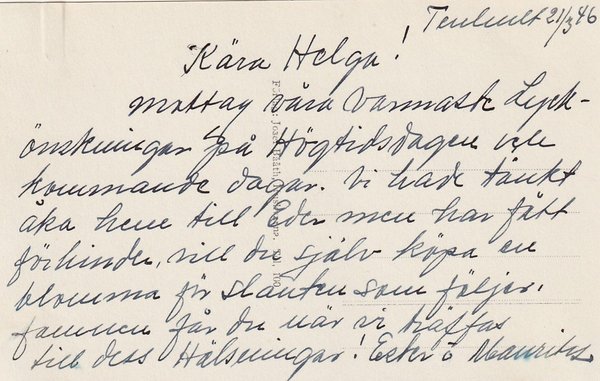 Tenhult 21/3 46
Kära Helga!
mottag våra varmaste Lyck-
önskningar på Högtidsdagen och
kommande dagar. Vi hade tänkt
åka hem till Eder men har fått
förhinder, vill du själv köpa en
blomma för slanten som följer.
famnen får du när vi träffas
till dess Hälsningar! Ester o Maurits